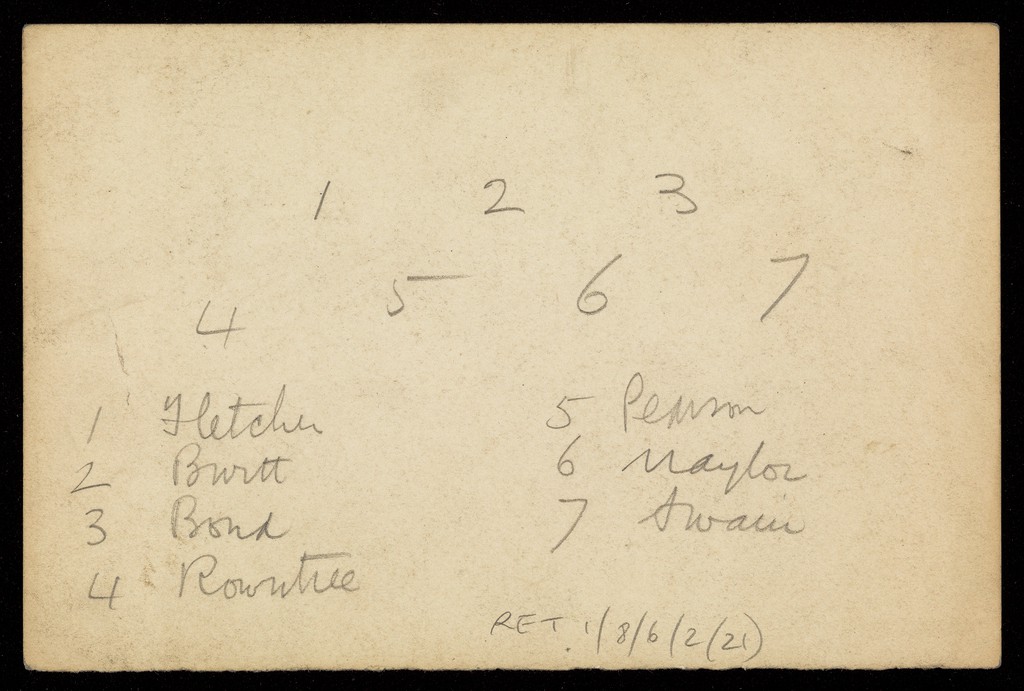 1 2 3
4 5 6 7
1 Fletcher
2 Burtt
3 Bond
4 Rowntree
5 Pearson
6 Naylor
7 Swain
RET. 1/8/6/2(21)